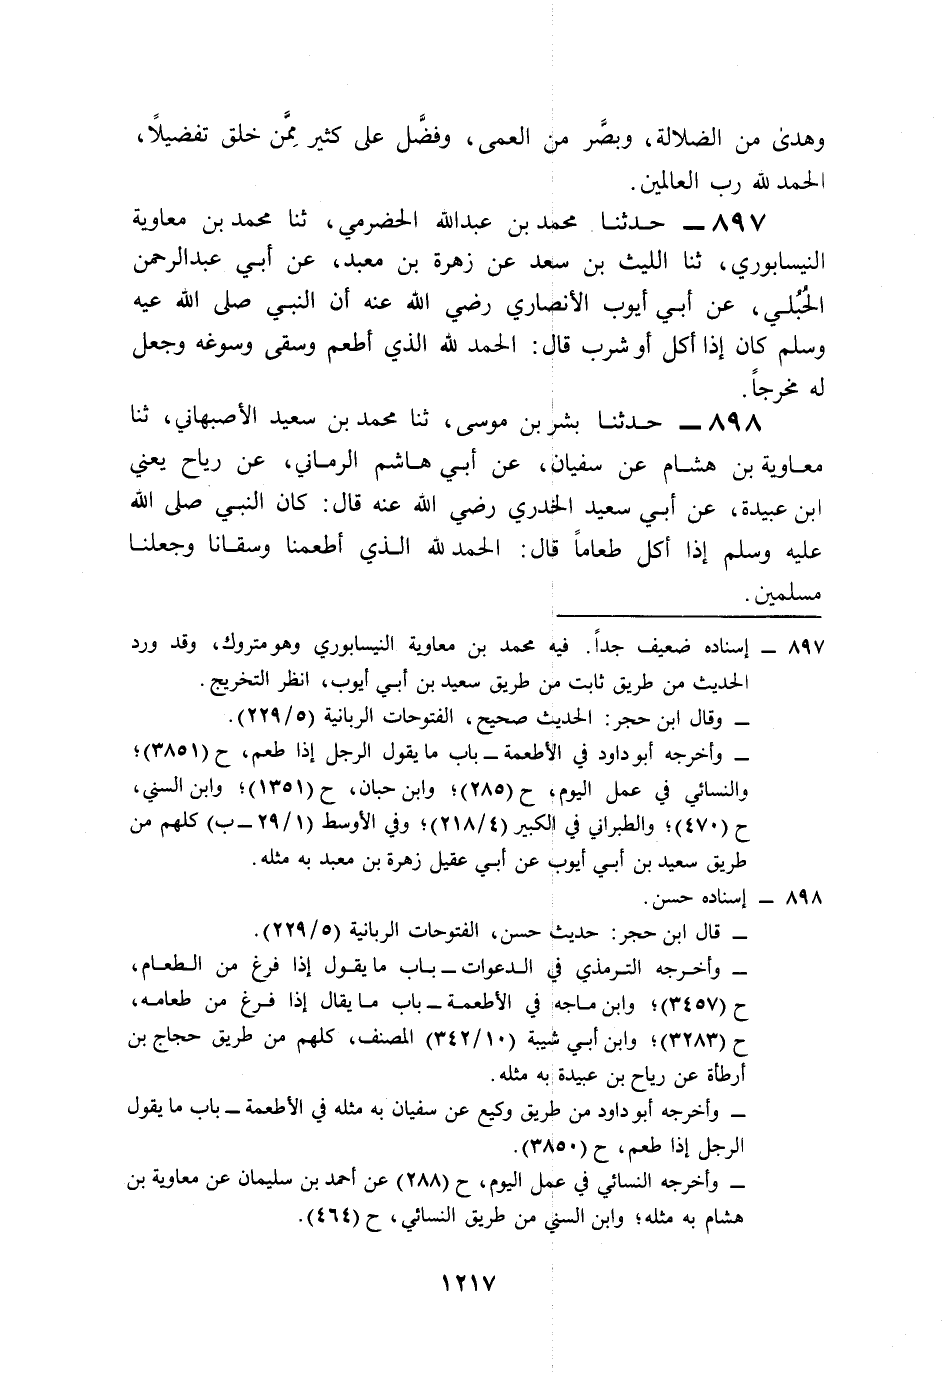 وهدىٰ من الضلالة، وبصَّر من العمى، وفضَّل على كثير مِمَّن خلق تفضيلاً،
الحمد لله رب العالمين.
٨٩٧ ــ حـدثنـا محمد بن عبدالله الحضرمي، ثنا محمد بن معاوية
النيسابوري، ثنا الليث بن سعد عن زهرة بن معبد، عن أبي عبدالرحمن
الحُبُلي، عن أبي أيوب الأنصاري رضي الله عنه أن النبي صلى الله عيه
وسلم كان إذا أكل أو شرب قال: الحمد لله الذي أطعم وسقى وسوغه وجعل
له مخرجاً.
٨٩٨ ــ حـدثنـا بشر بن موسى، ثنا محمد بن سعيد الأصبهاني، ثنا
معـاوية بن هشـام عن سفيان، عن أبـي هـاشم الرماني، عن رياح يعني
ابن عبيدة، عن أبـي سعيد الخدري رضي الله عنه قال: كان النبـي صلى الله
عليه وسلم إذا أكل طعاماً قال: الحمد لله الـذي أطعمنا وسقـانا وجعلنـا
مسلمين.
٨٩٧ ــ إسناده ضعيف جداً. فيه محمد بن معاوية النيسابوري وهو متروك، وقد ورد
الحديث من طريق ثابت من طريق سعيد بن أبـي أيوب، انظر التخريج.
ــ وقال ابن حجر: الحديث صحيح، الفتوحات الربانية (٥/٢٢٩).
ــ وأخرجه أبو داود في الأطعمة ــ باب ما يقول الرجل إذا طعم، ح (٣٨٥١)؛
والنسائي في عمل اليوم، ح (٢٨٥)؛ وابن حبان، ح (١٣٥١)؛ وابن السني،
ح (٤٧٠)؛ والطبراني في الكبير (٤/٢١٨)؛ وفي الأوسط (١/٢٩ ــ ب) كلهم من
طريق سعيد بن أبـي أيوب عن أبـي عقيل زهرة بن معبد به مثله.
٨٩٨ ــ إسناده حسن.
ــ قال ابن حجر: حديث حسن، الفتوحات الربانية (٥/٢٢٩).
ــ وأخـرجه التـرمذي في الـدعوات ــ بـاب ما يقول إذا فرغ من الـطعام،
ح (٣٤٥٧)؛ وابن مـاجه في الأطعمـة ــ باب مـا يقال إذا فـرغ من طعامـه،
ح (٣٢٨٣)؛ وابن أبـي شيبة (١٠/٣٤٢) المصنف، كلهم من طريق حجاج بن
أرطأة عن رياح بن عبيدة به مثله.
ــ وأخرجه أبو داود من طريق وكيع عن سفيان به مثله في الأطعمة ــ باب ما يقول
الرجل إذا طعم، ح (٣٨٥٠).
ــ وأخرجه النسائي في عمل اليوم، ح (٢٨٨) عن أحمد بن سليمان عن معاوية بن
هشام به مثله؛ وابن السني من طريق النسائي، ح (٤٦٤).
١٢١٧